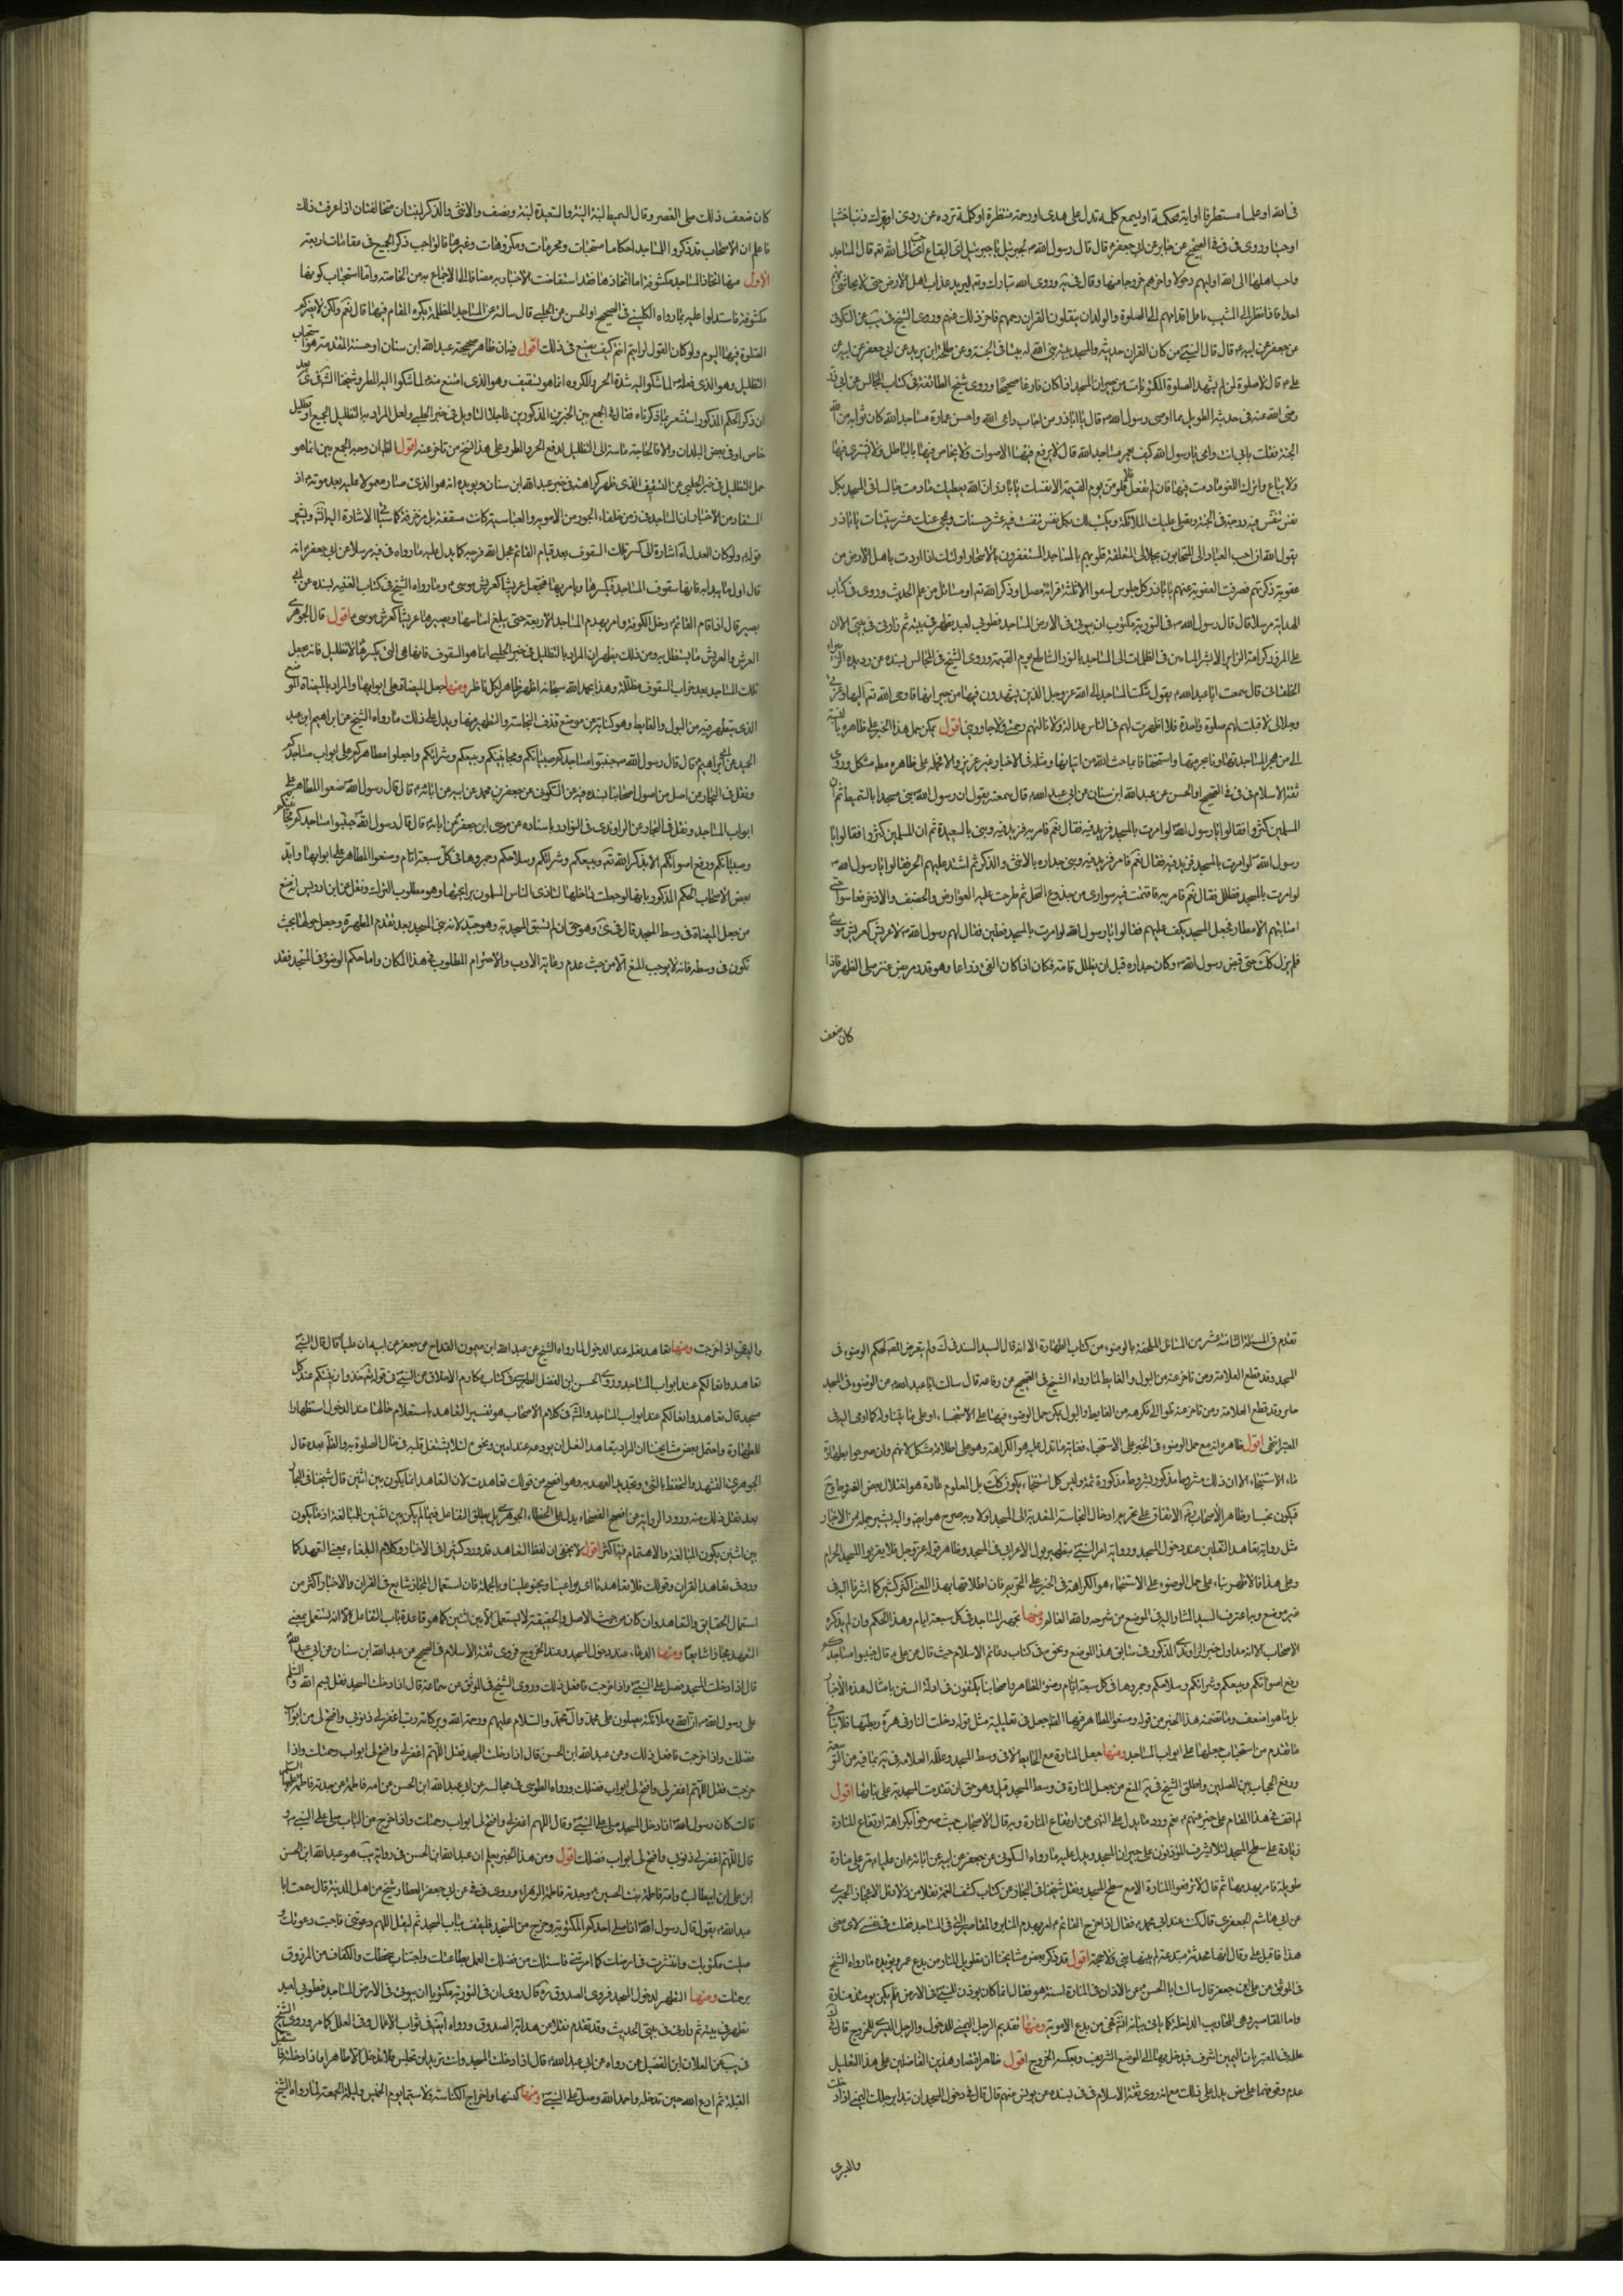 فى الله او علما مستطرفا او اية محكمة او يسمع كلمة تدل على هدى او رحمة منتظرة او كلمة ترده عن ردى او يترك ذنبا خشية
او حياء وروى فى فى الصحيح عن جابر عن ابى جعفر قال قال رسول الله لجبرئيل يا جبرئيل اى البقاع احب الى الله تع قال المساجد
واحب اهلها الى الله اولهم دخولا واخرهم خروجا منها وقال فى يه وروى ان الله تبارك وتع ليريد عذاب اهل الارض حتى لا يحاشى منهم
احدا فاذا نظر الى الشيب ناقلى اقدامهم الى الصلوة والولدان يتعلمون القران رحمهم فاخر ذلك عنهم وروى الشيخ فى يب عن السكونى
عن جعفر عن ابيه قال قال النبى من كان القران حديثه والمسجد بيته بنى الله له بيتا فى الجنة وعن طلحة ابن زيد عن ابى جعفر عن ابيه عن
على قال لا صلوة لمن لم يشهد الصلوة المكتوبات من جيران المسجد اذا كان فارغا صحيحا وروى شيخ الطائفة فى كتاب المجالس عن ابى ذر
رضى الله عنه فى حديثه الطويل مما اوصى رسول الله قال يا اباذر من اجاب داعى الله واحسن عمارة مساجد الله كان ثوابه من الله
الجنة فقلت بابى انت وامى يا رسول الله كيف يعمر مساجد الله قال لا يرفع فيها الاصوات ولا يخاض فيها بالباطل ولا يشترى فيها
ولا يباع واترك اللغو ما دمت فيها فان لم تفعل فلا تلومن يوم القيمة الا نفسك يا اباذر ان الله يعطيك ما دمت جالسا فى المسجد بكل
نفس تنفس فيه درجة فى الجنة وتصلى عليك الملائكة ويكتب لك بكل نفس تنفست فيه عشر حسنات ويمحى عنك عشر سيئات يا اباذر
يقول الله ان احب العباد الى المتحابون بجلالى المتعلقة قلوبهم بالمساجد المستغفرون بالاسحار اولئك اذا اردت باهل الارض من
عقوبة ذكرتهم فصرفت العقوبة عنهم يا اباذر كل جلوس لغو الا ثلثة قراءة مصل او ذكر الله تع او مسائل من علم الحديث وروى فى كتاب
الهداية مرسلا قال قال رسول الله فى التورية مكتوب ان بيوتى فى الارض المساجد فطوبى لعبد تطهر فى بيته ثم زارنى فى بيتى الا ان
على المزور كرامة الزاير الا بشر المشائين فى الظلمات الى المساجد بالنور الساطع يوم القيمة وروى الشيخ فى المجالس بسنده عن
الخلفانى قال سمعت ابا عبد الله يقول شكت المساجد الى الله عز وجل الذين لا يشهدونها من جيرانها فاوحى الله تع اليها وعزتى
وجلالى لا قبلت لهم صلوة واحدة فلا اظهرت لهم فى الناس عدالة ولا نالتهم رحمتى ولا جاورونى اقول يمكن حمل هذا الخبر على ظاهره بالنسبة
الى من هجر المساجد تهاونا بحرمتها واستخفافا بما حث الله من اتيانها ومثله فى الاخبار غير عزيز والا فحمله على ظاهره مط مشكل وروى
ثقة الاسلام فى فى فى الصحيح او الحسن عن عبد الله ابن سنان عن ابى عبد الله قال سمعته يقول ان رسول الله بنى مسجده بالسميط ثم ان
المسلمين كثروا فقالوا يا رسول الله لو امرت بالمسجد فزيد فيه فقال نعم فامر به فزيد فيه وبنى بالسعيدة ثم ان المسلمين كثروا فقالوا يا
رسول الله لو امرت بالمسجد فزيد فيه فقال نعم فامر فزيد فيه وبنى جداره بالانثى والذكر ثم اشتد عليهم الحر فقالوا يا رسول الله
لو امرت بالمسجد فظلل فقال نعم فامر به فاقيمت فيه سوارى من جذوع النخل ثم طرحت عليه العوارض والخصف والاذخر فعاشوا حتى
اصابتهم الامطار فجعل المسجد يكف عليهم فقالوا يا رسول الله لو امرت بالمسجد فطين فقال لهم رسول الله لا عريش كعريش موسى
فلم يزل كذلك حتى قبض رسول الله وكان جداره قبل ان يظلل قامة فكان اذا كان الفىء ذراعا وهو قدر مربض عنز صلى الظهر فاذا
كان ضعف
كان ضعف ذلك صلى العصر وقال السميط لبنة لبنة والسعيدة لبنة ونصف والانثى والذكر لبنتان متخالفتان اذا عرفت ذلك
فاعلم ان الاصحاب قد ذكروا للمساجد احكاما مستحبات ومحرمات ومكروهات وغيرها فالواجب ذكر الجميع فى مقامات اربعة
الاول منها اتخاذ المساجد مكشوفة اما اتخاذها فقد استفاضت الاخبار به مضافا الى الاجماع به من الخاصة والعامة واما استحباب كونها
مكشوفة فاستدلوا عليه بما رواه الكلينى فى الصحيح او الحسن عن الحلبى قال سالته عن المساجد المظللة يكره المقام فيها قال نعم ولكن لا يضركم
الصلوة فيها اليوم ولو كان العدل لرايتم انتم كيف يصنع فى ذلك اقول فيه ان ظاهر صحيحة عبد الله ابن سنان او حسنته المتقدمة هو استحباب
التظليل وهو الذى فعله لما شكوا اليه شدة الحر والمكروه انما هو تسقيف وهو الذى امتنع منه لما شكوا اليه المطر وشيخنا الشهيد فى كرى بعد
ان ذكر الحكم المذكور استشعر بما ذكرناه فقال فى الجمع بين الخبرين المذكورين ما اجاد التاويل فى خبر الحلبى ولعل المراد به التظليل الجميع او تظليل
خاص او فى بعض البلدان والا فالحاجة ماسة الى التظليل لدفع الحر والمطر وعلى هذا النسخ من تاخر عنه اقول الظ ان وجه الجمع بين انما هو
حمل التظليل فى خبر الحلبى عن السقيف الذى ظهر كراهته فى خبر عبد الله ابن سنان ويؤيده انه هو الذى صار معمولا عليه بعد موته اذ
المستفاد من الاخبار ان المساجد فى زمن خلفاء الجور من الاموية والعباسية كانت مسقفة بل مزخرفة كما سياتى الاشارة اليه ان شاء الله ويشير
قوله ولو كان العدل اه اشارة الى كسر تلك السقوف بعد قيام القائم عجل الله فرجه كما يدل عليه ما رواه فى فيه مرسلا عن ابى جعفر انه
قال اول ما يبدا به قائمنا سقوف المساجد فيكسرها ويامر بها فيجعل عريشا كعريش موسى وما رواه الشيخ فى كتاب الغيبة بسنده عن ابى
بصير قال اذا قام القائم دخل الكوفة وامر بهدم المساجد الاربعة حتى يبلغ اساسها ويصيرها عريشا كعريش موسى اقول قال الجوهرى
العرش والعريش ما يستظل به ومن ذلك يظهر ان المراد بالتظليل فى خبر الحلبى انما هو السقوف فانها هى التى يكسرها لا التظليل فانه يجعل
تلك المساجد بعد خراب السقوف مظللة وهذا بحمد الله سبحانه اظهر ظاهر لكل ناظر ومنها جعل الميضاة على ابوابها والمراد بالميضاة الموضع
الذى يتطهر فيه من البول والغايط وهو كناية عن موضع قذف النجاسة والتطهير منها ويدل على ذلك ما رواه الشيخ عن ابراهيم ابن عبد
الحميد عن ابى ابراهيم قال قال رسول الله جنبوا مساجدكم صبيانكم ومجانينكم وبيعكم وشرائكم واجعلوا مطاهركم على ابواب مساجدكم
ونقل فى البحار من اصل من اصول اصحابنا بسنده فيه عن السكونى عن جعفر بن محمد عن ابيه عن ابائه قال قال رسول الله ضعوا المطاهر على
ابواب المساجد ونقل فى البحار عن الراوندى فى النوادر باسناده عن موسى ابن جعفر عن ابائه قال قال رسول الله جنبوا مساجدكم مجانينكم
وصبيانكم ورفع اصواتكم الا بذكر الله تع وبيعكم وشرائكم وسلاحكم وجمروها فى كل سبعة ايام وضعوا المطاهر على ابوابها وايد
بعض الاصحاب الحكم المذكور بانها لو جعلت داخلها لتاذى الناس المسلمون برايحتها وهو مطلوب الترك ونقل عن ابن ادريس انه منع
من جعل الميضاة فى وسط المسجد قال فى كرى وهو حق ان لم يسبق المسجدية وهو جيد لانه بنى المسجد بعد تقدم المطهرة وجعل حولها بحيث
تكون فى وسطه فانه لا يوجب المنع الا من حيث عدم رعاية الادب والاحترام المطلوب فى هذا المكان واما حكم الوضوء فى المسجد فقد
تقدم فى المسئلة الثامنة عشر من المسائل الملحقة بالوضوء من كتاب الطهارة الا انه قال السيد السند فى ك ولم يتعرض المصنف لحكم الوضوء فى
المسجد وقد قطع العلامة ومن تاخر عنه من البول والغايط لما رواه الشيخ فى الصحيح عن رفاعة قال سالت ابا عبد الله عن الوضوء فى المسجد
وقد قطع العلامة ومن تاخر عنه فكرهه من الغايط والبول يمكن حمل الوضوء فيها على الاستنجاء او على ما يتناوله كما اومى اليه فى
المعتبر انتهى اقول ظاهره انه مع حمل الوضوء فى الخبر على الاستنجاء فغاية ما تدل عليه هو الكراهة وهو على اطلاقه مشكل لانهم وان صرحوا بطهارة
ماء الاستنجاء الا ان ذلك مشروط بشروط مذكورة ثمة وليس كل استنجاء يكون كذلك بل المعلوم عادة هو اختلال بعض الشروط وح
فيكون نجسا وظاهر الاصحاب الاتفاق على تحريم ادخال النجاسة المتعدية الى المسجد وبه صرح هو ايضا واليه يشير جملة من الاخبار
مثل رواية تعاهد النعلين عند دخول المسجد ورواية امر النبى بتطهير بول الاعرابى فى المسجد وظاهر قوله عز وجل فلا يقربوا المسجد الحرام
وعلى هذا فالاظهر بناء على حمل الوضوء على الاستنجاء هو حمل الكراهة فى الخبر على التحريم فان اطلاقها بهذا المعنى اكثر كثير كما اشرنا اليه فى
غير موضع وبه اعترف السيد المشار اليه فى الموضع من شرحه والله العالم ومنها تجمير المساجد فى كل سبعة ايام وهذا الحكم وان لم يذكره
الاصحاب الا انه مدلول خبر الراوندى المذكور فى سابق هذا الموضع ونحوه فى كتاب دعائم الاسلام حيث قال عن على قال جنبوا مساجدكم
رفع اصواتكم وبيعكم وشرائكم وسلاحكم وجمروها فى كل سبعة ايام وضعوا المطاهر واصحابنا يكتفون فى ادلة السنن بامثال هذه الاخبار
بل ما هو اضعف وما تضمنه هذا الخبر من قوله وضعوا المطاهر فيها الظ جعل فى تعليلية مثل قوله دخلت النار فى هرة ربطتها فلا ينافى
ما تقدم من استحباب جعلها على ابواب المساجد ومنها جعل المنارة مع الحائط لا فى وسط المسجد وعلله العلامة فى يه بما فيه من التوسعة
ورفع الحجاب بين المصلين واطلق الشيخ فى يه المنع من جعل المنارة فى وسط المسجد قيل وهو حق ان تقدمت المسجدية على بنائها اقول
لم اقف فى هذا المقام على خبر عنهم نعم ورد ما يدل على النهى عن ارتفاع المنارة وبه قال الاصحاب حيث صرحوا بكراهة ارتفاع المنارة
زيادة على سطح المسجد لئلا يشرف المؤذنون على جيران المسجد ويدل عليه ما رواه السكونى عن جعفر عن ابيه عن ابائه ان عليا مر على منارة
طويلة فامر بهدمها ثم قال لا ترفعوا المنارة الا مع سطح المسجد ونقل شيخنا فى البحار عن كتاب كشف الغمة نقلا من دلائل الاعجاز الحميرى
عن ابى هاشم الجعفرى قال كنت عند ابى محمد فقال اذا خرج القائم امر بهدم المنابر والمقاصير التى فى المساجد فقلت فى نفسى لاى معنى
هذا فاقبل على وقال انها محدثة مبتدعة لم يبنها نبى ولا حجة اقول قد ذكر بعض مشايخنا ان تطويل المنار من بدع عمر ويؤيده ما رواه الشيخ
فى الموثق عن على ابن جعفر قال سالت ابا الحسن عن الاذان فى المنارة اسنة هو فقال انما كان يؤذن للنبى فى الارض فلم يكن يومئذ منارة
واما المقاصير وهى المحاريب الداخلة كما ياتى بيانه انشاء الله فهى من بدع الاموية ومنها تقديم الرجل اليمنى للدخول والرجل اليسرى للخروج قال فى
علله فى المعتبر بان اليمين اشرف فيدخل بها الى الموضع الشريف وبعكسه الخروج اقول ظاهر اقتصار هذين الفاضلين على هذا التعليل
عدم وقوفهما على نص يدل على ذلك مع انه روى ثقة الاسلام فى فى بسنده عن يونس عنهم قال قال فى دخول المسجد ان تبدا برجلك اليمنى اذا دخلت
واليسرى
واليسرى اذا خرجت ومنها تعاهد نعله عند الدخول لما رواه الشيخ عن عبد الله ابن ميمون القداح عن جعفر عن ابيه ان عليا قال قال النبى
تعاهدوا نعالكم عند ابواب المساجد وروى الحسن ابن الفضل الطبرسى فى كتاب مكارم الاخلاق عن النبى فى قوله تع خذوا زينتكم عند كل
مسجد قال تعاهدوا نعالكم عند ابواب المساجد والمشهور فى كلام الاصحاب هو تفسير التعاهد باستعلام حالها عند الدخول استظهارا
للطهارة واحتمل بعض مشايخنا ان المراد بتعاهد النعل ان يودعه عند امين ونحوه لئلا يشتغل قلبه فى حال الصلوة به والظ بعده قال
الجوهرى التعهد والتحفظ بالشىء وتجديد العهد به وهو افصح من قولك تعاهدت لان التعاهد انما يكون بين اثنين قال شيخنا فى البحار
بعد نقل ذلك منه وورود الرواية عن افصح الفصحاء يدل على خطاء الجوهرى بل يطلق التفاعل فيما لم يكن بين اثنين للمبالغة اذ ما يكون
بين اثنين يكون المبالغة والاهتمام فيه اكثر اقول لا يخفى ان لفظ التعاهد قد ورد كثيرا فى الاخبار وكلام البلغاء بمعنى التعهد كما
ورد فى تعاهد القران وقولك فلان تعاهدنا اى يراعينا ويحنو علينا وبالجملة فان استعمال المجاز شايع فى القران والاخبار اكثر من
استعمال الحقايق والتعاهد وان كان من حيث الاصل والحقيقة لا يستعمل الا بين اثنين كما هو قاعدة باب التفاعل الا انه يستعمل بمعنى
التعهد مجازا شايعا ومنها الدعاء عند دخول المسجد وعند الخروج فروى ثقة الاسلام فى الصحيح عن عبد الله ابن سنان عن ابى عبد الله
قال اذا دخلت المسجد فصل على النبى واذا خرجت فافعل ذلك وروى الشيخ فى الموثق عن سماعة قال اذا دخلت المسجد فقل بسم الله والسلام
على رسول الله ان الله وملائكته يصلون على محمد وال محمد والسلام عليهم ورحمة الله وبركاته رب اغفر لى ذنوبى وافتح لى من ابواب
فضلك واذا خرجت فافعل ذلك وعن عبد الله ابن الحسن قال اذا دخلت المسجد فقل اللهم اغفر لى وافتح لى ابواب رحمتك واذا
خرجت فقل اللهم اغفر لى وافتح لى ابواب فضلك ورواه الطوسى فى مجالسه عن ابى عبد الله ابن الحسن عن امه فاطمة عن جدته فاطمة عليها السلام
قالت كان رسول الله اذا دخل المسجد صلى على النبى وقال اللهم اغفر لى وافتح لى ابواب رحمتك واذا خرج من الباب صلى على النبى و
قال اللهم اغفر لى ذنوبى وافتح لى ابواب فضلك اقول ومن هذا الخبر يعلم ان عبد الله ابن الحسن فى رواية يب هو عبد الله ابن الحسن
ابن على ابن ابيطالب وامه فاطمة بنت الحسين وجدته فاطمة الزهراء وروى فى فى عن ابى جعفر العطار شيخ من اهل المدينة قال سمعت ابا
عبد الله يقول قال رسول الله اذا صلى احدكم المكتوبة وخرج من المسجد فليقف بباب المسجد ثم ليقل اللهم دعوتنى فاجبت دعوتك و
صليت مكتوبتك وانتشرت فى ارضك كما امرتنى فاسئلك من فضلك العمل بطاعتك واجتناب سخطك والكفاف من الرزق
برحمتك ومنها التطهر لدخول المسجد فروى الصدوق ره قال روى ان فى التورية مكتوبا ان بيوتى فى الارض المساجد فطوبى لعبد
تطهر فى بيته ثم زارنى فى بيتى الحديث وقد تقدم نقلا من هداية الصدوق ورواه ايضا فى ثواب الاعمال وفى العلل كما مر وروى الشيخ
فى يب عن العلاء ابن الفضيل عن رواه عن ابى عبد الله قال اذا دخلت المسجد وانت تريد ان تجلس فلا تدخله الا طاهرا واذا دخلته فاستقبل
القبلة ثم ادع الله حين تدخله واحمد الله وصل على النبى ومنها كنسها واخراج الكناسة ولا سيما يوم الخميس وليلة الجمعة لما رواه الشيخ